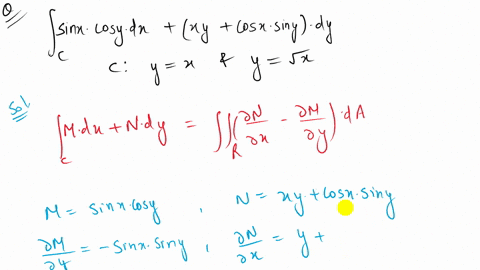 Q
∫_C sinx·cosy·dx + (xy + cosx·siny)·dy
C: y = x & y = √x
Sol
∫_C M·dx + N·dy = ∬_R (∂N/∂x - ∂M/∂y)·dA
M = sinx·cosy , N = xy + cosx·siny
∂M/∂y = -sinx·siny , ∂N/∂x = y +